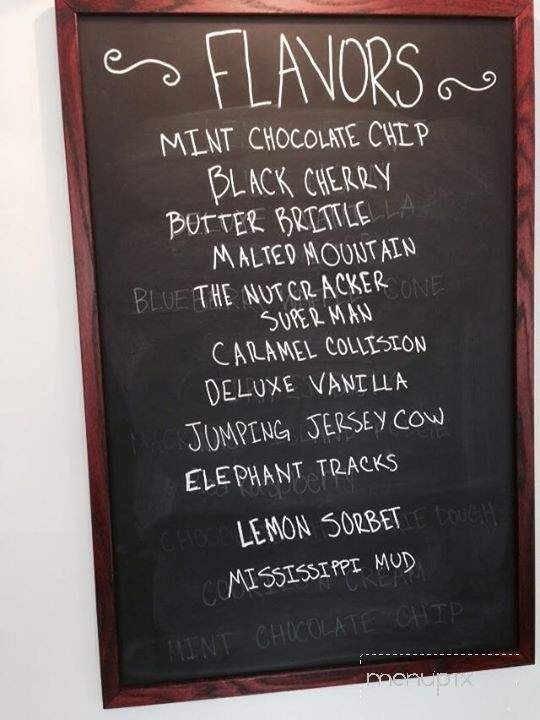 FLAVORS
MINT CHOCOLATE CHIP
BLACK CHERRY
BUTTER BRITTLE
MALTED MOUNTAIN
THE NUTCRACKER
SUPERMAN
CARAMEL COLLISION
DELUXE VANILLA
JUMPING JERSEY COW
ELEPHANT TRACKS
LEMON SORBET
MISSISSIPPI MUD
MINT CHOCOLATE CHIP
menupix